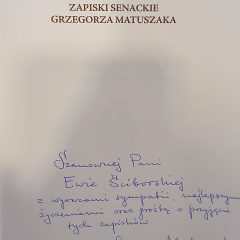 ZAPISKI SENACKIE
GRZEGORZA MATUSZAKA
Szanownej Pani
Ewie Ściborskiej
z wyrazami sympatii, najlepszym
życzeniami oraz prośbą o przyjęcie
tych zapisków